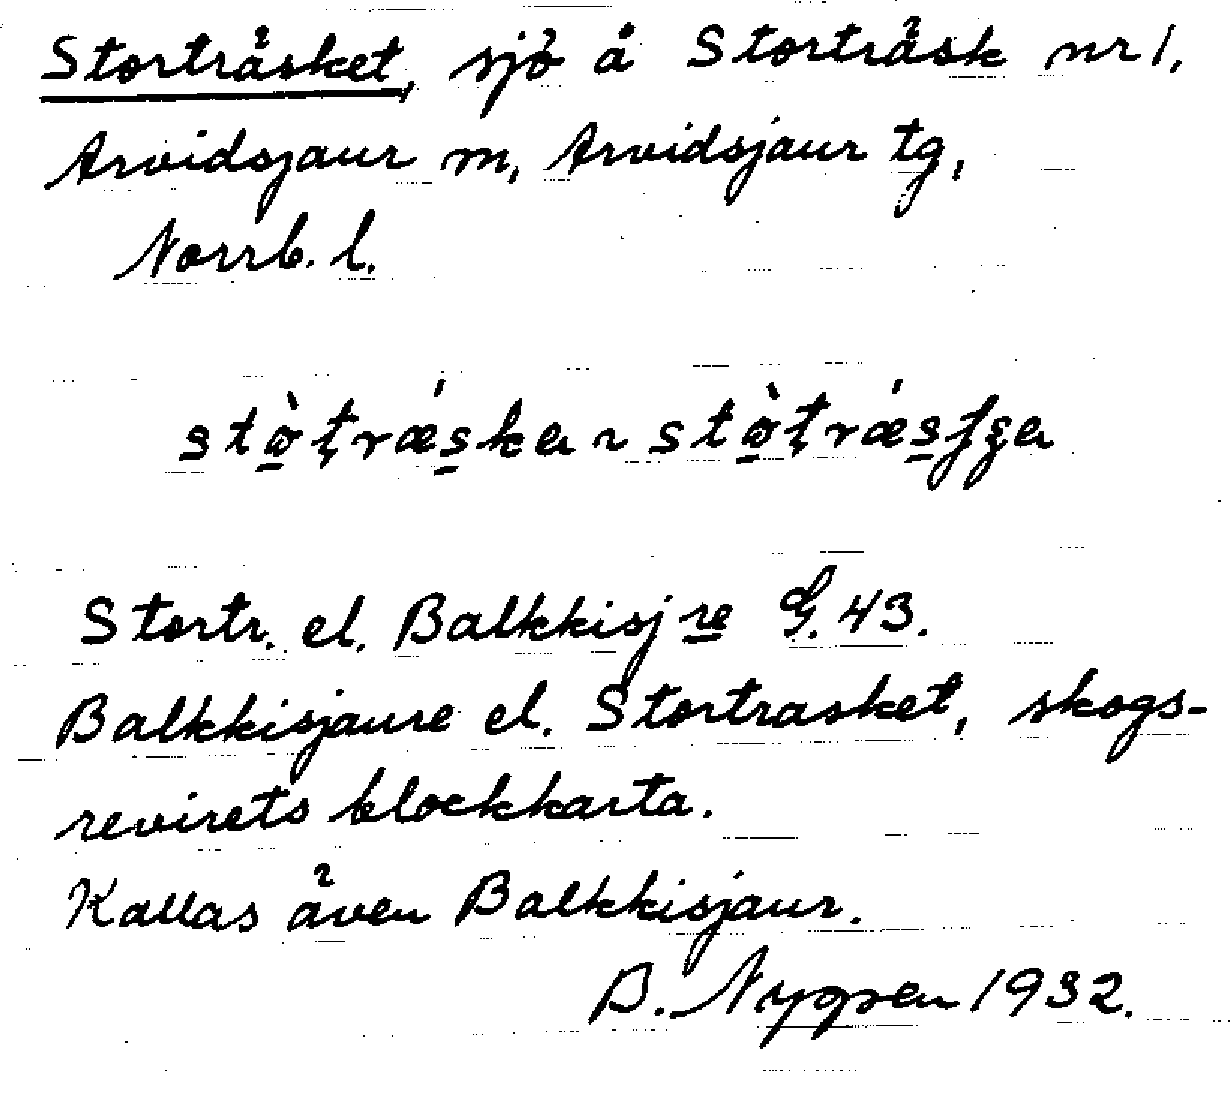 Storträsket, sjö å Storträsk nr 1,
Arvidsjaur m, Arvidsjaur tg,
Norrb. l.
stò̠ţrǽs̠ka ~ stò̠ţrǽs̠ʃʒa
Stortr. el. Balkkisjre G. 43.
Balkkisjaure el. Stortrasket, skogs-
revirets blockkarta.
Kallas även Balkkisjaur.
B. Nygren 1932.